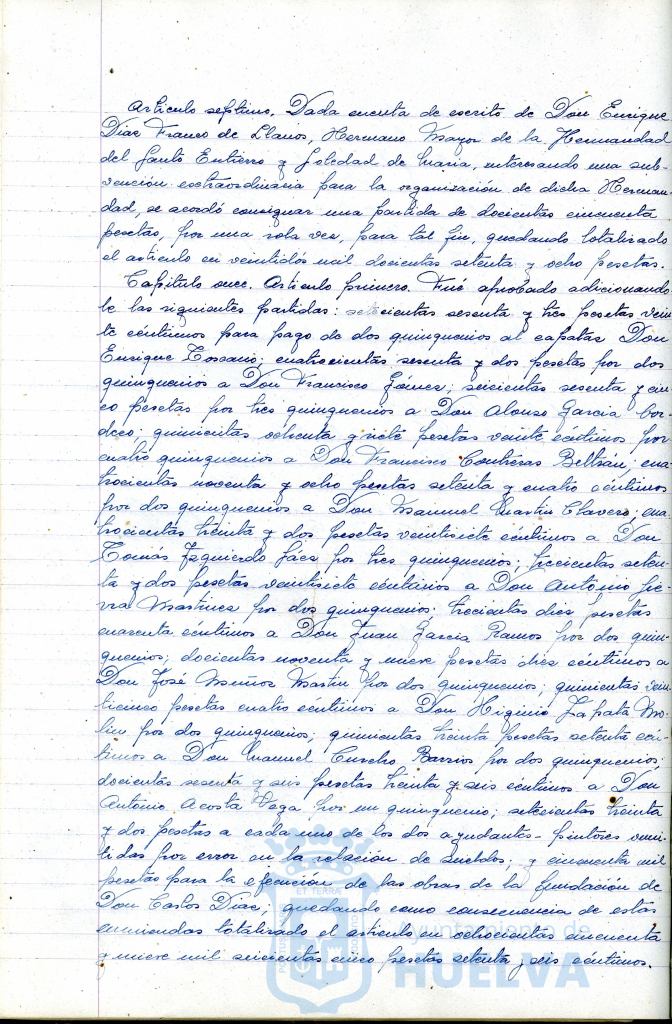 Artículo septimo. Dada cuenta de escrito de Don Enrique
Diaz Franco de Llanos, Hermano Mayor de la Hermandad
del Santo Entierro y Soledad de Maria, interesando una sub-
vención extraordinaria para la organización de dicha Herman-
dad, se acordó consignar una partida de docientas cincuenta
pesetas, por una sola vez, para tal fin, quedando totalizado
el artículo en veintidós mil docientas setenta y ocho pesetas.
Capítulo once. Artículo primero. Fué aprobado adicionando
le las siguientes partidas: setecientas sesenta y tres pesetas vein
te céntimos para pago de dos quinquenios al capataz Don
Enrique Toscano; cuatrocientas sesenta y dos pesetas por dos
quinquenios a Don Francisco Gómez; seicientas sesenta y cin
co pesetas por tres quinquenios a Don Alonso Garcia Cor
dero; quinientas ochenta y siete pesetas veinte céntimos por
cuatro quinquenios a Don Francisco Contreras Beltrán; cua
trocientas noventa y ocho pesetas setenta y cuatro céntimos
por dos quinquenios a Don Manuel Martin Clavero; cua
trocientas treinta y dos pesetas veintisiete céntimos a Don
Tomás Izquierdo Sáez por tres quinquenios; trecientas seten-
ta y dos pesetas veintisiete céntimos a Don Antonio Sie-
rra Martinez por dos quinquenios; trecientas diez pesetas
cuarenta céntimos a Don Juan Garcia Ramos por dos quin-
quenios; docientas noventa y nueve pesetas diez céntimos a
Don José Muñoz Martin por dos quinquenios; quinientas vein
ticinco pesetas cuatro céntimos a Don Higinio Zapata Mo-
lin por dos quinquenios; quinientas treinta pesetas setenta cén-
timos a Don Manuel Barrios por dos quinquenios;
docientas sesenta y seis pesetas treinta y seis céntimos a Don
Antonio Acosta Vega por un quinquenio; setecientas treinta
y dos pesetas a cada uno de los dos ayudantes-pintores omi-
tidas por error en la relación de sueldos; y cincuenta mil
pesetas para la ejecución de las obras de la fundación de
Don Carlos Diaz; quedando como consecuencia de estas
enmiendas totalizado el artículo en ochocientas cincuenta
y nueve mil seicientas cinco pesetas setenta y seis céntimos.
Ayuntamiento de
HUELVA